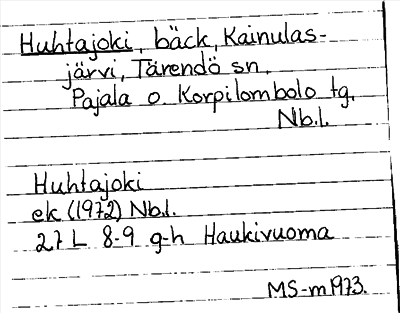 Huhtajoki, bäck, Kainulas-
järvi, Tärendö sn,
Pajala o. Korpilombolo tg,
Nb.l.
Huhtajoki
ek (1972) Nb.l.
27 L 8-9 g-h Haukivuoma
MS-m1973.